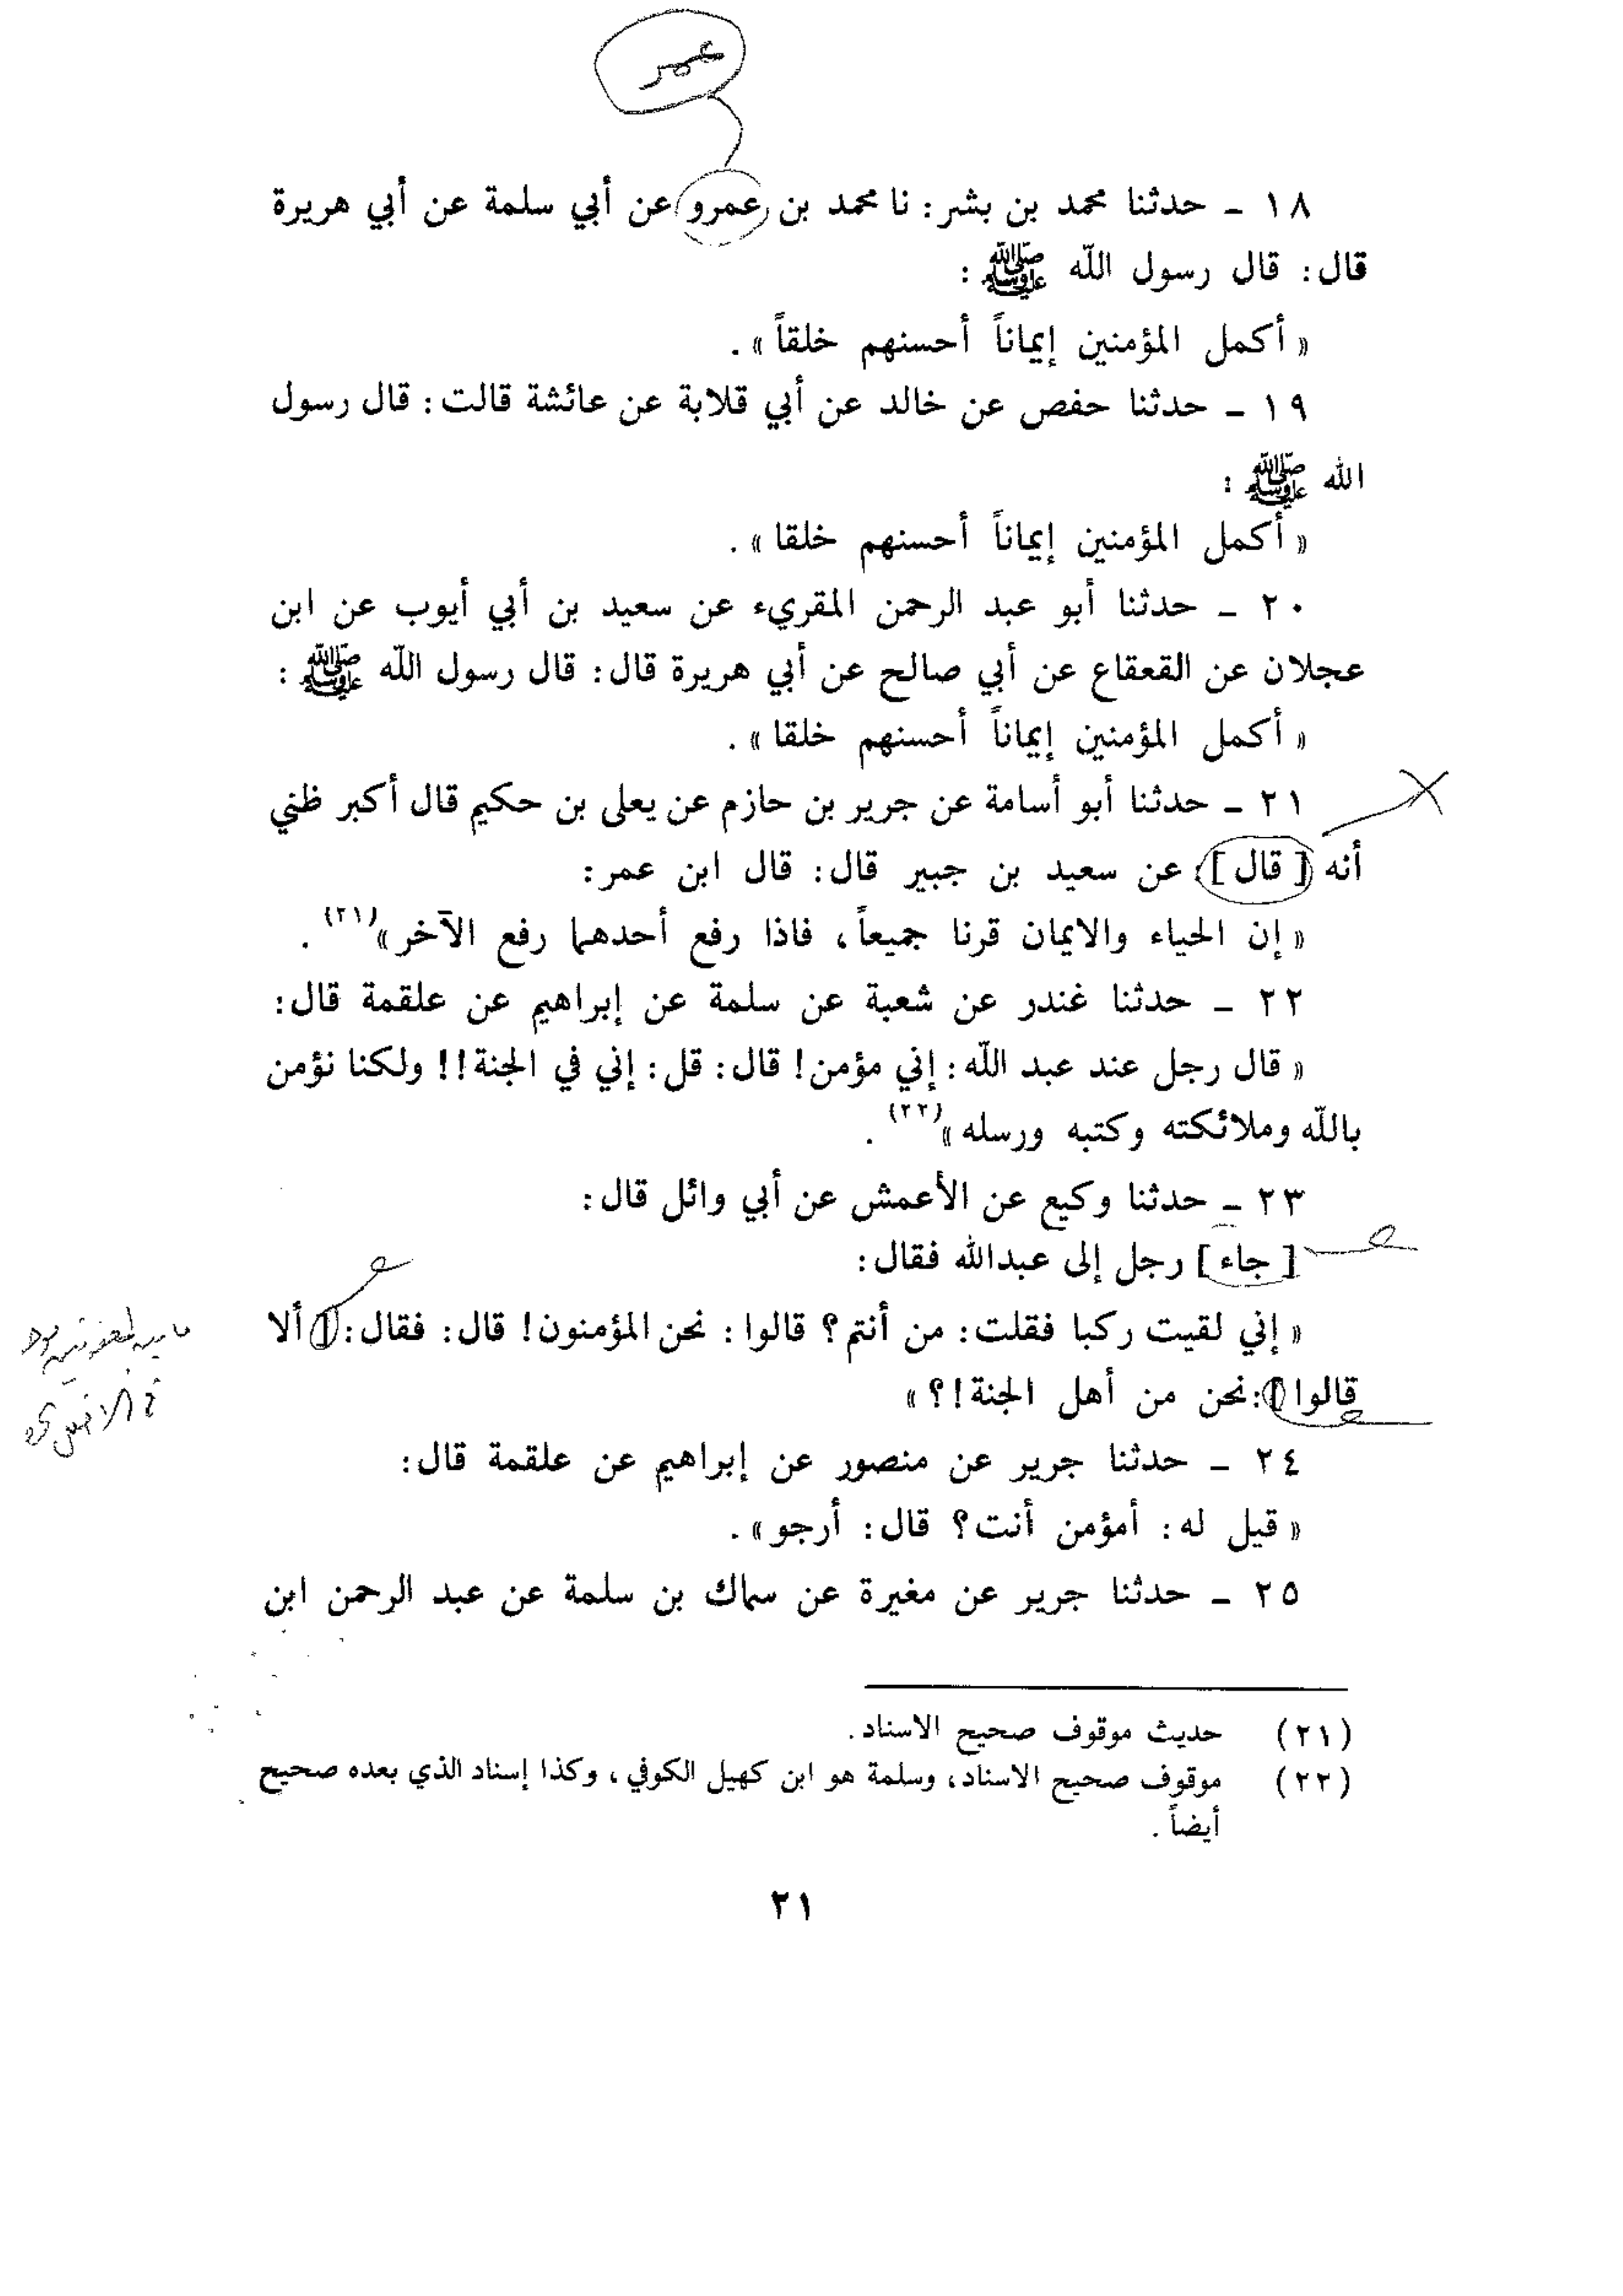 عمر
١٨ ــ حدثنا محمد بن بشر: نا محمد بن عمرو عن أبي سلمة عن أبي هريرة
قال: قال رسول اللّه ﷺ :
« أكمل المؤمنين إيماناً أحسنهم خلقاً » .
١٩ ــ حدثنا حفص عن خالد عن أبي قلابة عن عائشة قالت: قال رسول
الله ﷺ :
« أكمل المؤمنين إيماناً أحسنهم خلقا » .
٢٠ ــ حدثنا أبو عبد الرحمن المقريء عن سعيد بن أبي أيوب عن ابن
عجلان عن القعقاع عن أبي صالح عن أبي هريرة قال: قال رسول اللّه ﷺ :
« أكمل المؤمنين إيماناً أحسنهم خلقا » .
٢١ ــ حدثنا أبو أسامة عن جرير بن حازم عن يعلى بن حكيم قال أكبر ظني
أنه [ قال ] : عن سعيد بن جبير قال: قال ابن عمر:
« إن الحياء والايمان قرنا جميعاً، فاذا رفع أحدهما رفع الآخر »(٢١) .
٢٢ ــ حدثنا غندر عن شعبة عن سلمة عن إبراهيم عن علقمة قال:
« قال رجل عند عبد اللّه: إني مؤمن! قال: قل: إني في الجنة!! ولكنا نؤمن
باللّه وملائكته وكتبه ورسله »(٢٢) .
٢٣ ــ حدثنا وكيع عن الأعمش عن أبي وائل قال:
[ جاء ] رجل إلى عبدالله فقال:
« إني لقيت ركبا فقلت: من أنتم؟ قالوا: نحن المؤمنون! قال: فقال: [ ألا
قالوا ]: نحن من أهل الجنة!؟ »
٢٤ ــ حدثنا جرير عن منصور عن إبراهيم عن علقمة قال:
« قيل له: أمؤمن أنت؟ قال: أرجو » .
٢٥ ــ حدثنا جرير عن مغيرة عن سماك بن سلمة عن عبد الرحمن ابن
(٢١) حديث موقوف صحيح الاسناد.
(٢٢) موقوف صحيح الاسناد، وسلمة هو ابن كهيل الكوفي، وكذا إسناد الذي بعده صحيح
أيضاً .
٢١